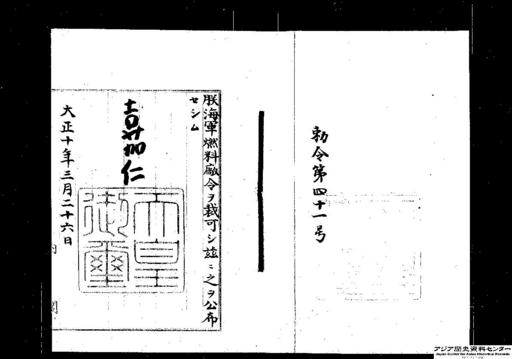 勅令第四十一号
朕海軍燃料廠令ヲ裁可シ茲ニ之ヲ公布
セシム
嘉仁
天皇御璽
大正十年三月二十六日
内閣
アジア歴史資料センター
Japan Center for Asian Historical Records